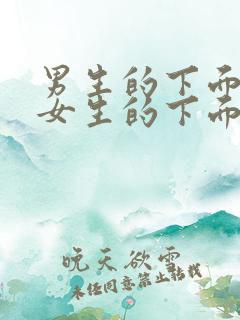 男生的下面
女生的下面
晚天欲雪
未经同意禁止转载